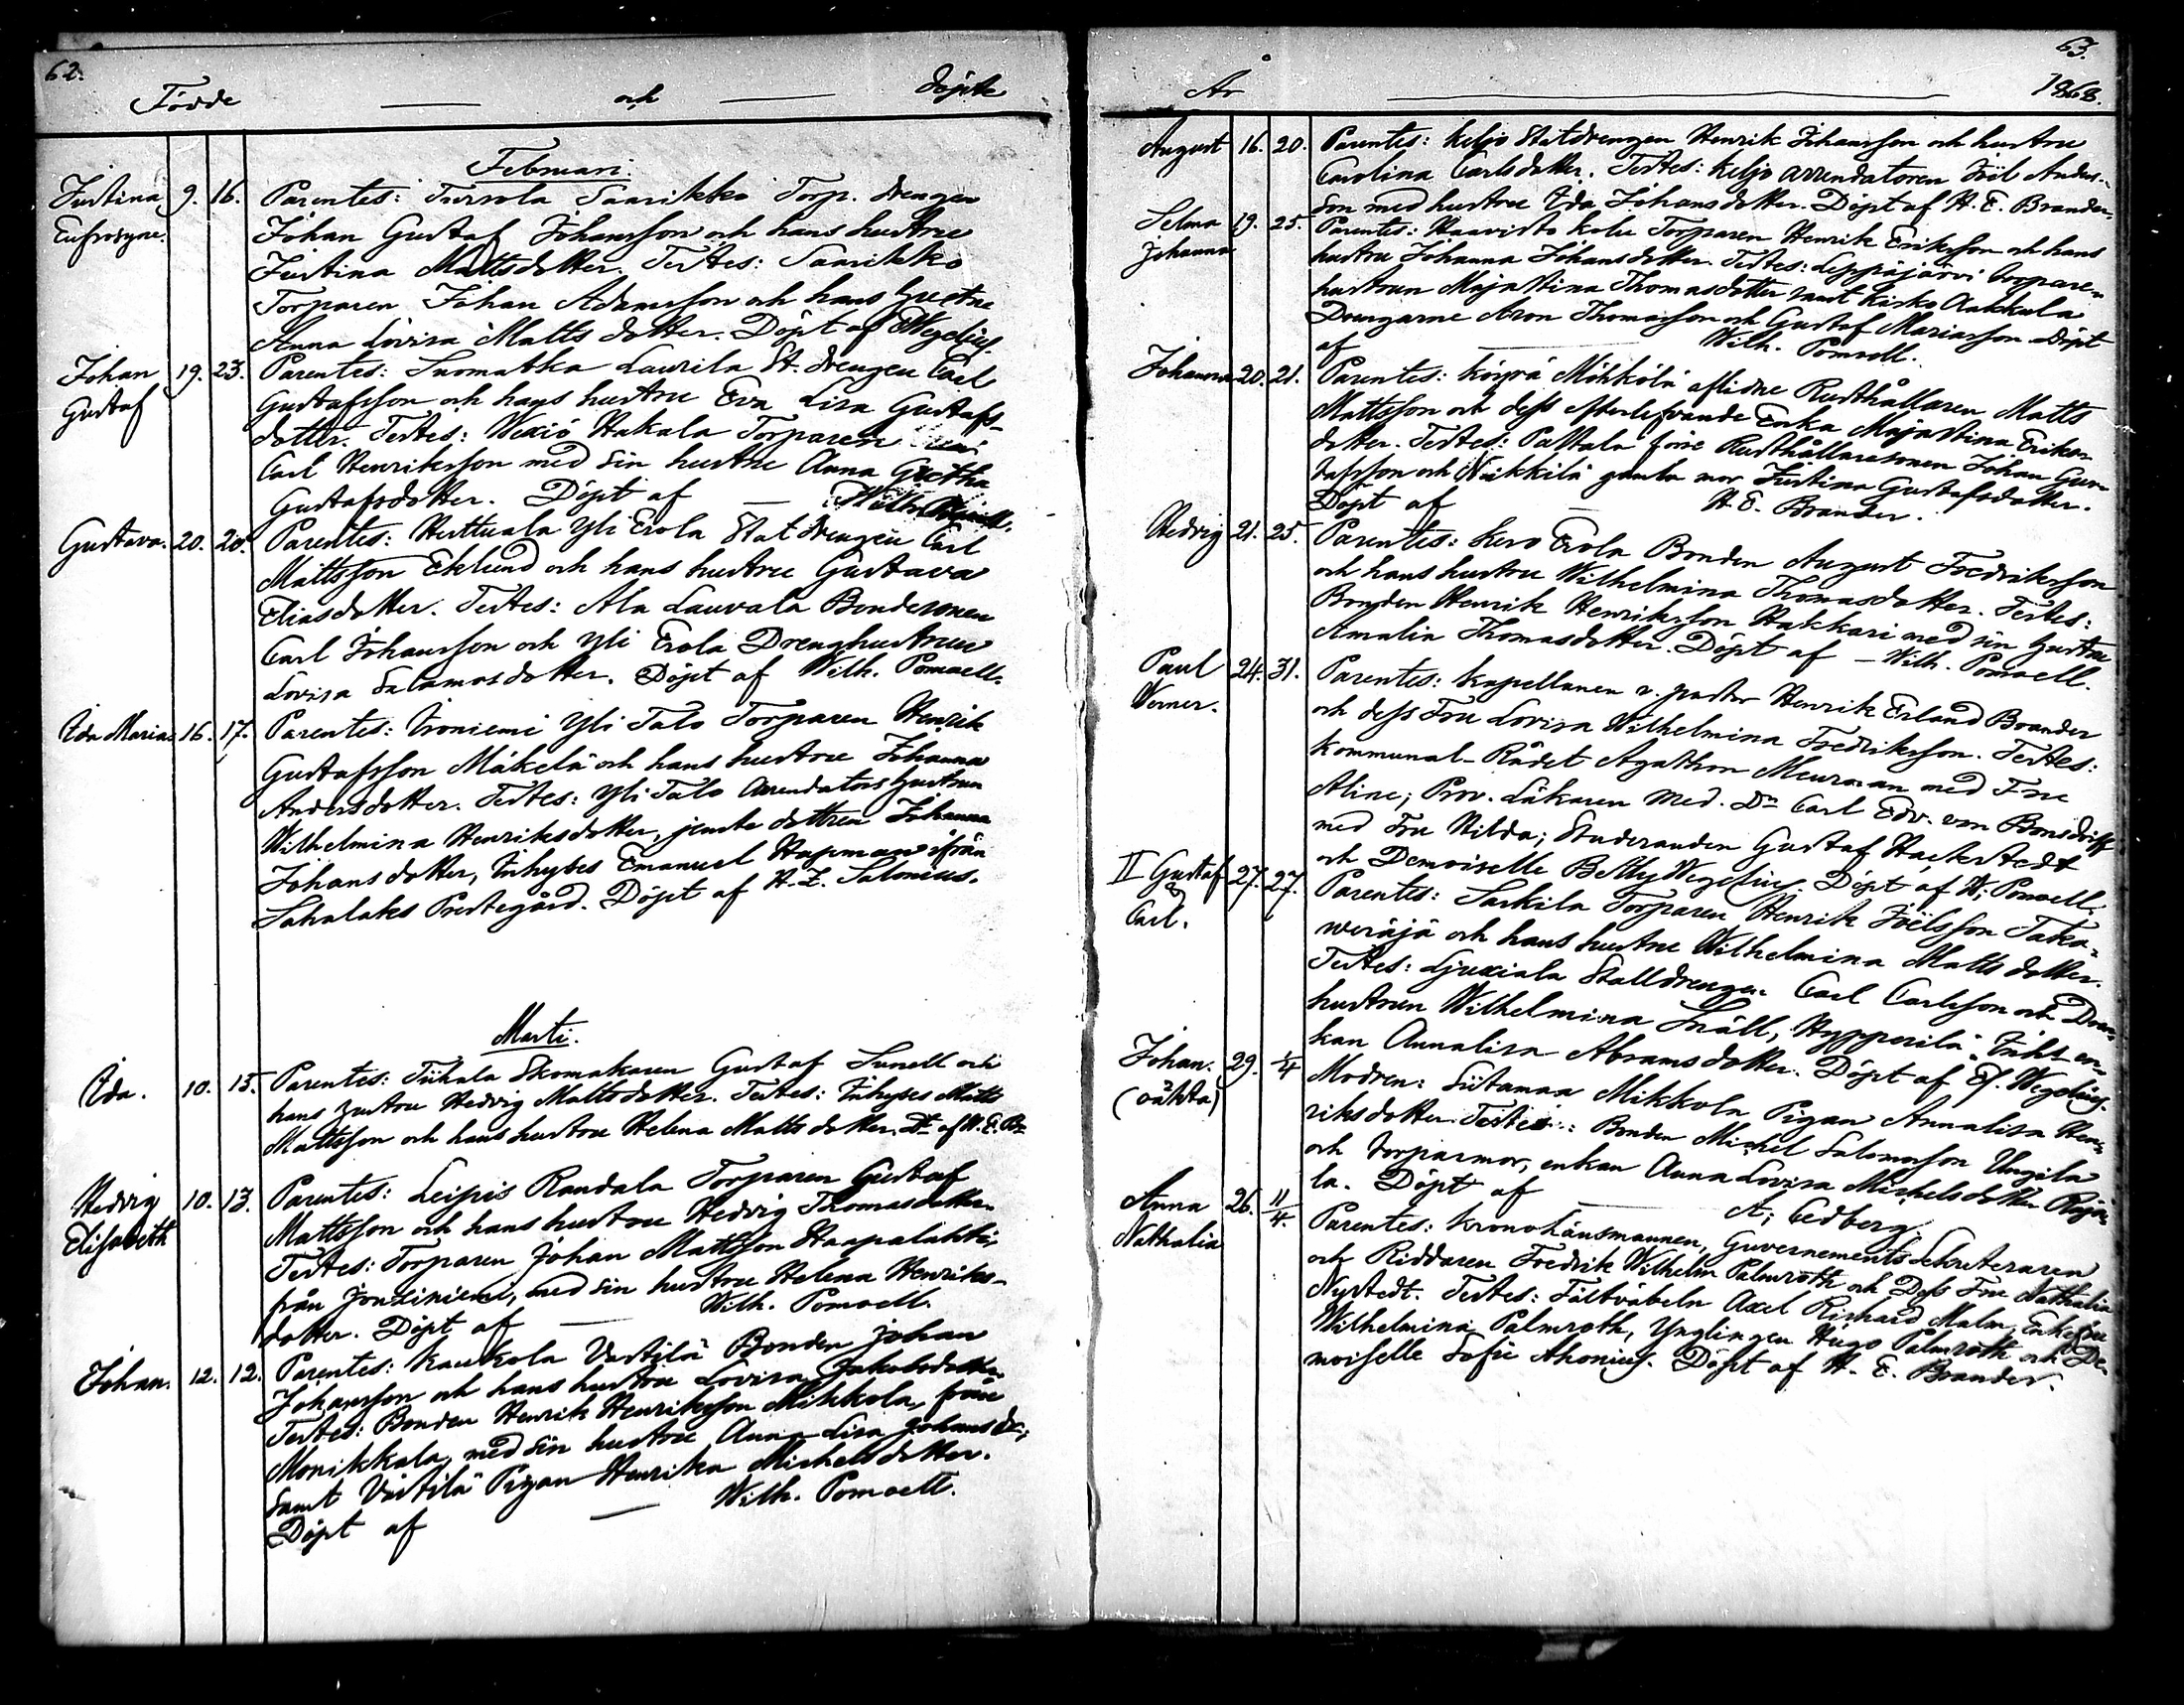 62.
Födde — och — döpte
Februari.
Justina 9. 16. Parentes: Tursola Saarikko Torp. drengen
Eufrosyne. Johan Gustaf Johansson och hans hustru
Justina Mattsdotter. Testes: Saarikko
Torparen Johan Adamsson och hans hustru
Anna Lovisa Matts dotter. Döpt af Wegelius.
Johan 19. 23. Parentes: Suomatka Laurila St. drengen Carl
Gustaf Gustafsson och hans hustru Eva Lisa Gustafs-
dotter. Testes: Wexiö Hakala Torparen
Carl Henriksson med sin hustru Anna Gretha
Gustafsdotter. Döpt af — Wilh. Pomoell.
Gustava. 20. 20. Parentes: Herttuala Yli Erola Stat drengen Carl
Mattsson Eklund och hans hustru Gustava
Eliasdotter. Testes: Ala Lauvala Bondesonen
Carl Johansson och Yli Erola Drenghustrun
Lovisa Salamosdotter. Döpt af Wilh. Pomoell.
Ida Maria 16. 17. Parentes: Ironiemi Yli Talo Torparen Henrik
Gustafsson Mäkelä och hans hustru Johanna
Andersdotter. Testes: Yli Talo Arrendators hustrun
Wilhelmina Henriksdotter, jemte dottren Johanna
Johansdotter, Inhyses Emanuel Hapman ifrån
Sahalaks Prestegård. Döpt af H. Z. Salonius.
Marti.
Ida. 10. 15. Parentes: Tiihala Skomakaren Gustaf Sunell och
hans hustru Hedvig Mattsdotter. Testes: Inhyses Matts
Mattsson och hans hustru Helena Matts dotter. Dt af H. E. Br
Hedvig 10. 13. Parentes: Leipis Raudala Torparen Gustaf
Elisabeth Mattsson och hans hustru Hedvig Thomasdotter.
Testes: Torparen Johan Mattsson Haapalahti,
från Jouziniemi, med sin hustru Helena Henriks-
dotter. Döpt af — Wilh. Pomoell.
Johan. 12. 12. Parentes: Kaukola Vastilä Bonden Johan
Johansson och hans hustru Lovisa Jakobsdotter
Testes: Bonden Henrik Henriksson Mikkola, från
Monikkala, med sin hustru Anna Lisa Johans dr,
samt Västilä Pigan Henrika Michelsdotter.
Döpt af — Wilh. Pomoell.
63.
År — 1868.
August 16. 20. Parentes: Keljo Statdrengen Henrik Johansson och hustru
Carolina Carlsdotter. Testes: Keljo arrendatoren Joël Anders-
son med hustru Ida Johansdotter. Döpt af H. E. Brander.
Selma 19. 25. Parentes: Haavisto Kolu Torparen Henrik Eriksson och hans
Johanna hustru Johanna Johansdotter. Testes: Leppäjärvi torpare
hustrun Maja Stina Thomasdotter samt Kisko Aakkula
Drengarne Aron Thomasson och Gustaf Mariasson. Döpt
af — Wilh. Pomoell.
Johanna 20. 21. Parentes: Köyrä Mökkölä aflidne Rusthållaren Matts
Mattsson och dess efterlefvande Enka Maja Stina Eriks-
dotter. Testes: Pattala förre Rusthållaresonen Johan Gus-
tafsson och Nikkilä gamla mor Justina Gustafsdotter.
Döpt af — H. E. Brander.
Hedvig 21. 25. Parentes: Kero Erola Bonden August Fredriksson
och hans hustru Wilhelmina Thomasdotter. Testes:
Bonden Henrik Henriksson Hakkari med sin hustru
Amalia Thomasdotter. Döpt af — Wilh. Pomoell.
Paul 24. 31. Parentes: Kapellanen v. pastor Henrik Erland Brander
Werner. och dess Fru Lovisa Wilhelmina Fredriksson. Testes:
Kommunal-Rådet Agathon Meurman med Fru
Aline; Prov. Läkaren Med. Dr Carl Edv. von Bonsdorff
med Fru Hilda; Studeranden Gustaf Hackstedt
och Demoiselle Betty Wegelius. Döpt af W; Pomoell.
II Gustaf 27. 27. Parentes: Sarkila Torparen Henrik Joëlsson Taka-
& Carl. weräjä och hans hustru Wilhelmina Matts dotter.
Testes: Ljuxiala Stalldrengen Carl Carlsson och Dreng
hustrun Wilhelmina Snäll, Hypperilä Inhs. en-
kan Annalisa Abramsdotter. Döpt af Ef. Wegelius.
Johan. 29. 1/4 Modren: Siitamaa Mikkola Pigan Annalisa Hen-
(oäkta) riksdotter. Testes: Bonden Michel Salomosson Ungila
och torparmor, enkan Anna Lovisa Michelsdotter Raja-
la. Döpt af — A; Cedberg.
Anna 26. 11/4. Parentes: Kronolänsmannen, Guvernements Sekreteraren
Nathalia och Riddaren Fredrik Wilhelm Palmroth och Dess Fru Nathalia
Nystedt. Testes: Fältväbeln Axel Richard Malm, Enkefru
Wilhelmina Palmroth, Ynglingen Hugo Palmroth och De-
moiselle Sofie Ahonius. Döpt af H. E. Brander.